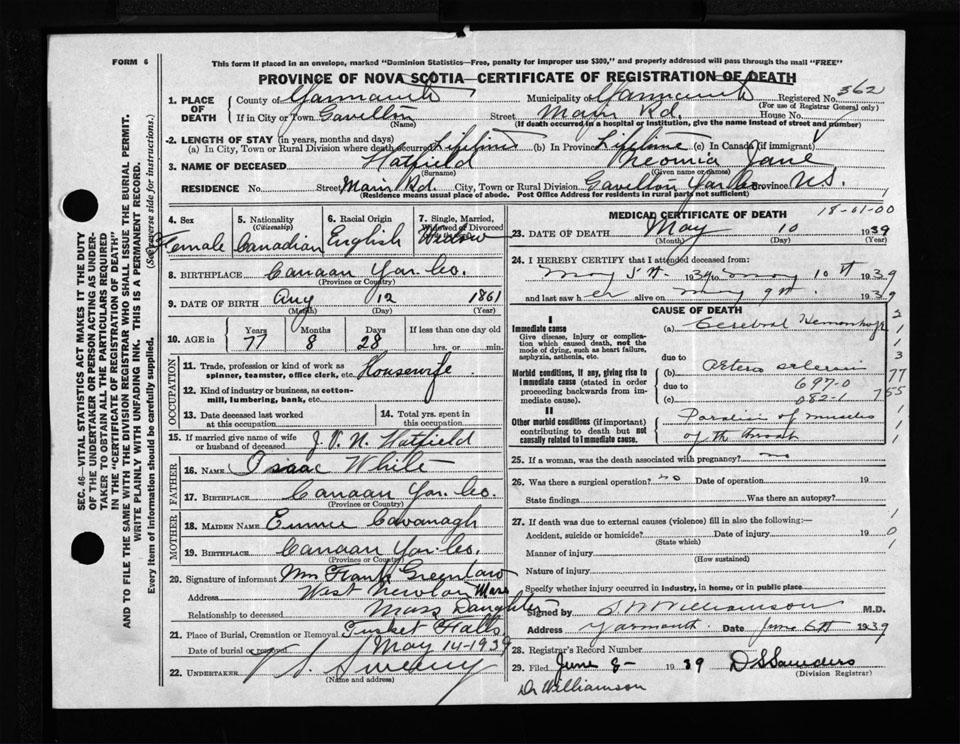 FORM 6
This form if placed in an envelope, marked "Dominion Statistics—Free, penalty for improper use $300," and properly addressed will pass through the mail "FREE"
PROVINCE OF NOVA SCOTIA—CERTIFICATE OF REGISTRATION OF DEATH
SEC. 46—VITAL STATISTICS ACT MAKES IT THE DUTY
OF THE UNDERTAKER OR PERSON ACTING AS UNDER-
TAKER TO OBTAIN ALL THE PARTICULARS REQUIRED
IN THE "CERTIFICATE OF REGISTRATION OF DEATH"
AND TO FILE THE SAME WITH THE DIVISION REGISTRAR WHO SHALL ISSUE THE BURIAL PERMIT.
WRITE PLAINLY WITH UNFADING INK. THIS IS A PERMANENT RECORD.
Every item of information should be carefully supplied. (See reverse side for instructions.)
1. PLACE OF DEATH
County of Yarmouth Municipality of Yarmouth Registered No. 362
(For use of Registrar General only)
If in City or Town Gavelton Street Main Rd. House No.
(Name) (If death occurred in a hospital or institution, give the name instead of street and number)
2. LENGTH OF STAY (in years, months and days)
(a) In City, Town or Rural Division where death occurred Lifetime (b) In Province Lifetime (c) In Canada (if immigrant)
3. NAME OF DECEASED Hatfield Neomia Jane
(Surname) (Given name or names)
RESIDENCE No. Street Main Rd. City, Town or Rural Division Gavelton Yar Co. Province N.S.
(Residence means usual place of abode. Post Office Address for residents in rural parts not sufficient)
4. Sex Female
5. Nationality (Citizenship) Canadian
6. Racial Origin English
7. Single, Married, Widowed or Divorced Widow
8. BIRTHPLACE Canaan Yar. Co.
(Province or Country)
9. DATE OF BIRTH Aug 12 1861
(Month) (Day) (Year)
10. AGE in Years 77 Months 8 Days 28 If less than one day old
hrs. or min.
OCCUPATION
11. Trade, profession or kind of work as
spinner, teamster, office clerk, etc. Housewife
12. Kind of industry or business, as cotton-
mill, lumbering, bank, etc.
13. Date deceased last worked
at this occupation
14. Total yrs. spent in
this occupation
15. If married give name of wife
or husband of deceased J. V. N. Hatfield
FATHER
16. NAME Isaac White
17. BIRTHPLACE Canaan Yar. Co.
(Province or Country)
MOTHER
18. MAIDEN NAME Cavanagh
19. BIRTHPLACE Canaan Yar. Co.
(Province or Country)
20. Signature of informant Mrs Frank Greenlaw
Address West Newton Mass
Relationship to deceased Mass Daughter
21. Place of Burial, Cremation or Removal Tusket Falls
Date of burial or removal May 14-1939
22. UNDERTAKER V. S. Sweeny
(Name and address)
MEDICAL CERTIFICATE OF DEATH 18-61-00
23. DATE OF DEATH May 10 1939
(Month) (Day) (Year)
24. I HEREBY CERTIFY that I attended deceased from
May 5th 1939 to May 10th 1939
and last saw her alive on May 9th 1939
CAUSE OF DEATH
I
Immediate cause
Give disease, injury or complica-
tion which caused death, not the
mode of dying, such as heart failure,
asphyxia, asthenia, etc.
(a) Cerebral Hemorrhage
due to
Morbid conditions, if any, giving rise to
immediate cause (stated in order
proceeding backwards from im-
mediate cause).
(b) Arterio sclerosis
due to 697-0
(c) 082-1
II
Other morbid conditions (if important)
contributing to death but not
causally related to immediate cause.
Paralysis of muscles
of the throat
2
1
1
3
77
755
1
1
1
25. If a woman, was the death associated with pregnancy? no
26. Was there a surgical operation? no Date of operation 19
State findings Was there an autopsy?
27. If death was due to external causes (violence) fill in also the following:—
Accident, suicide or homicide? Date of injury 19
(State which)
Manner of injury
(How sustained)
Nature of injury
Specify whether injury occurred in industry, in home, or in public place
1
0
1
Signed by Williamson M.D.
Address Yarmouth Date June 6th 1939
28. Registrar's Record Number
29. Filed June 8- 1939 D S Saunders
(Division Registrar)
Dr Williamson